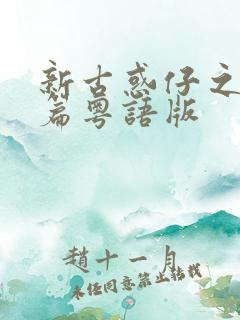 新古惑仔之
篇粵語版
趙十一月
未經同意禁止轉載